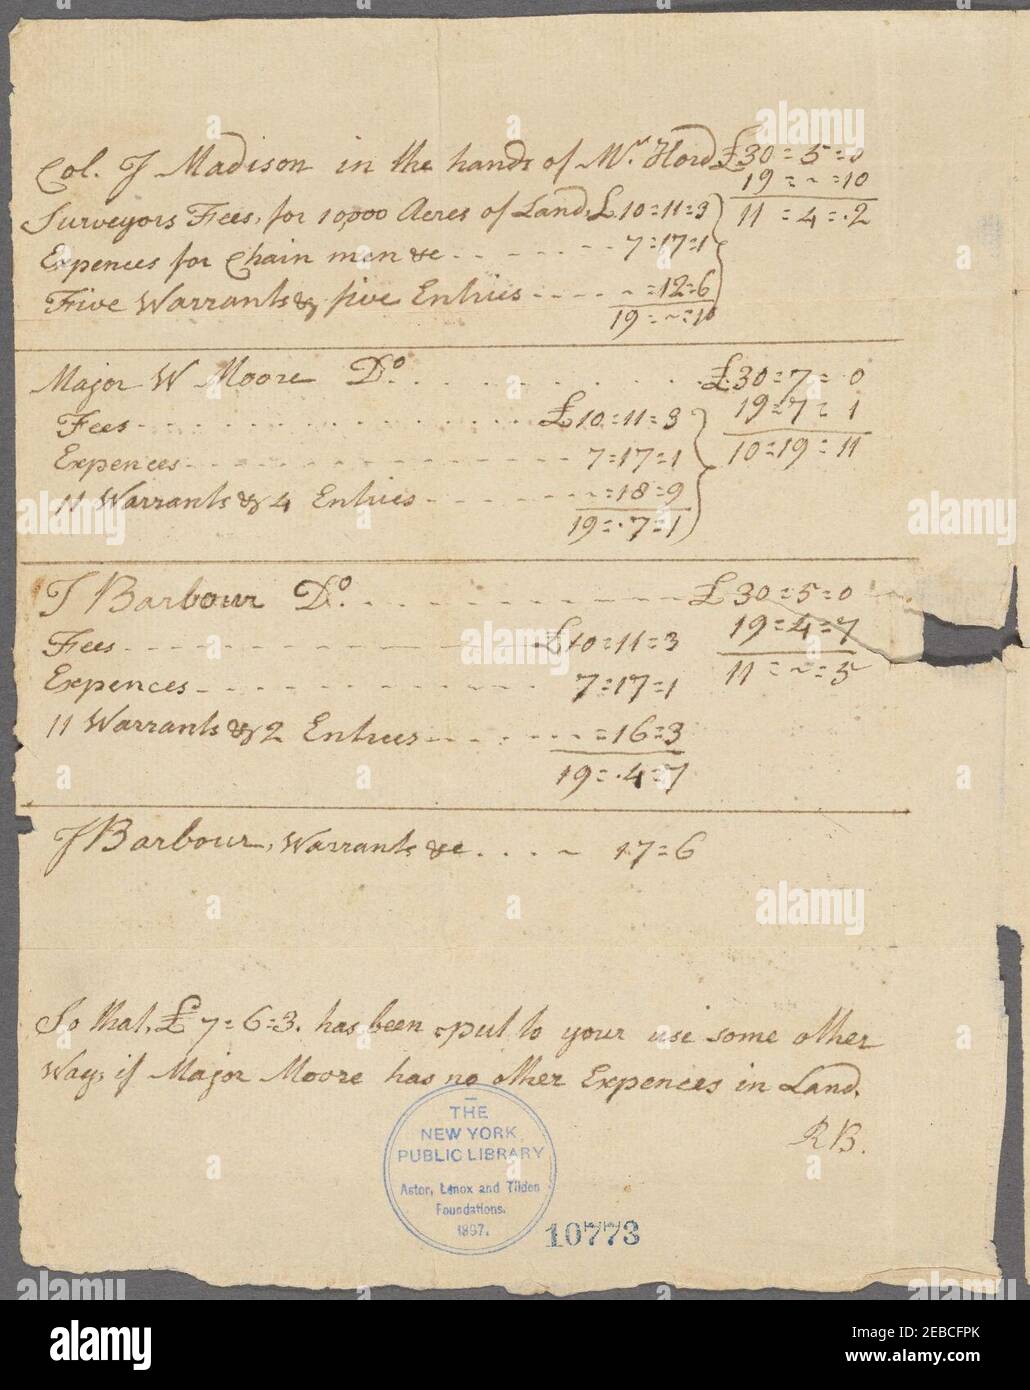 Col. J Madison in the hands of Mr. Hord £30=5=0
19=~=10
Surveyors Fees, for 10,000 Acres of Land, £10=11=3 11=4=.2
Expences for Chain men &c - - - - - - - 7=17=1
Five Warrants & five Entries - - - - ~=12=6
19=~=10
Major W Moore Do. . . . . . . . . . . £30=7=0
Fees - - - - - - - - - - - - - - £10=11=3 19=7=1
Expences - - - - - - - - - - - - - 7=17=1 10=19=11
11 Warrants & 4 Entries - - - - - - ~=18=9
19=.7=1
J Barbour Do. - - - - - - - - - - £30=5=0
Fees - - - - - - - - - - - - - - £10=11=3 19=4=7
Expences - - - - - - - - - - - - 7=17=1 11=~=5
11 Warrants & 2 Entries - - - - - - ~=16=3
19=.4=7
J Barbour, Warrants &c . . . . ~ 17=6
So that, £7=6=3. has been put to your use some other
Way, if Major Moore has no other Expences in Land.
RB.
THE
NEW YORK
PUBLIC LIBRARY
Astor, Lenox and Tilden
Foundations.
1897.
10773
alamy
Image ID: 2EBCFPK
www.alamy.com